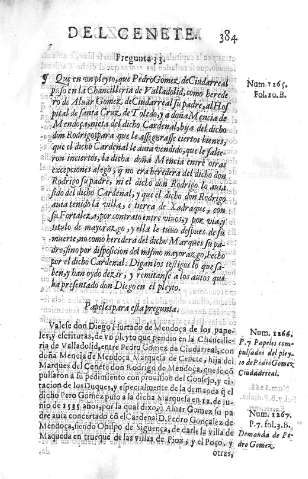 DEL CENETE. 384
Pregunta 33.
Que en un pleyto, que Pedro Gomez de Ciudarreal
puso en la Chancilleria de Valladolid, como here
dero de Aluar Gomez de Ciudarreal su padre, al Hos
pital de santa Cruz de Toledo, y a doña Mencia de
Mendoça, nieta del dicho Cardenal, hija del dicho
don Rodrigo, para que le assegurasse ciertos bienes,
que el dicho Cardenal le auia vendido, que le salie-
ron inciertos, la dicha doña Mencia entre otras
excepciones alegò, q̃ no era heredera del dicho don
Rodrigo su padre, ni el dicho don Rodrigo lo auia
sido del dicho Cardenal, y que el dicho don Rodrigo
auia tenido la villa, y tierra de Xadraque, con
su Fortaleza, por contrato entre viuos, y por via, y
titulo de mayorazgo, y ella le tuuo despues de su
muerte, no como heredera del dicho Marques su pa-
dre, sino por disposicion del mismo mayorazgo, hecho
por el dicho Cardenal. Digan los testigos lo que sa-
ben, y han oydo dezir, y remitanse a los autos que
ha presentado don Diego en el pleyto.
Papeles para esta pregunta.
Valese don Diego Hurtado de Mendoça de los pape-
les, y escrituras, de vn pleyto que pendio en la Chancille-
ria de Valladolid, entre Pedro Gomez de Ciudarreal, con
doña Mencia de Mendoça Marquesa de Cenete, hija del
Marques del Cenete don Rodrigo de Mendoça, que se có
pulsaron a su pedimiento con prouision del Consejo, y ci-
tacion de los Duques, y especialmente de la demanda q̃ el
dicho Pero Gomez puso a la dicha Marquesa en 12. de ju-
nio de 1535 años, por la qual dixo, q̃ Aluar Gomez su pa
dre auia concertado có el Cardenal D. Pedro Gonçalez de
Mendoça, siendo Obispo de Siguença, de darle la villa de
Maqueda en trueque de las villas de Pioz, y el Poço, y
otras,
Num. 1265.
Fol. 10. B.
Num. 1266.
P. 7 Papeles com
pulsados del pley-
to de Pedro Gomez
Ciudarreal.
Num. 1267.
P. 7. fol. 3. B.
Demanda de Pe-
dro Gomez.